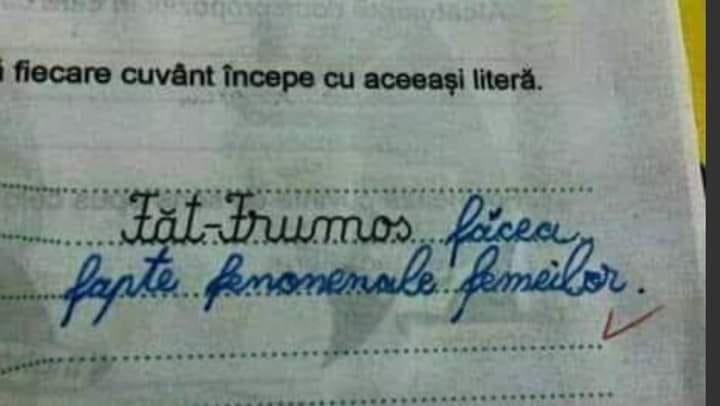 fiecare cuvânt începe cu aceeași literă.
Făt-Frumos făcea
fapte fenomenale femeilor.